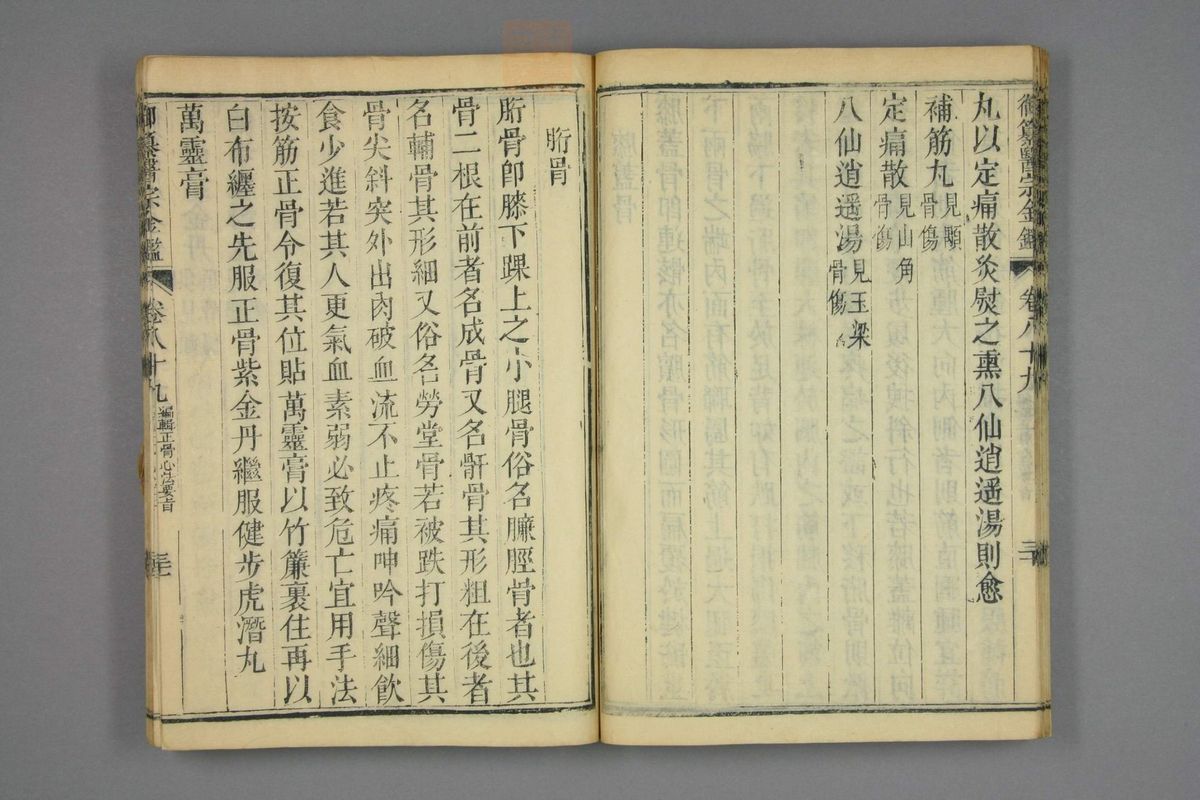 御纂醫宗金鑑 卷八十九
丸以定痛散灸熨之熏八仙逍遥湯則愈
補筋丸 見顒骨傷
定痛散 見山角骨傷
八仙逍遥湯 見玉梁骨傷
胻骨
胻骨卽膝下踝上之小腿骨俗名臁脛骨者也其
骨二根在前者名成骨又名骭骨其形粗在後者
名輔骨其形細又俗名勞堂骨若被跌打損傷其
骨尖斜突外出肉破血流不止疼痛呻吟聲細飮
食少進若其人更氣血素弱必致危亡宜用手法
按筋正骨令復其位貼萬靈膏以竹簾裹住再以
白布纒之先服正骨紫金丹繼服健步虎潛丸
萬靈膏
御纂醫宗金鑑 卷八十九 編輯正骨心法要旨